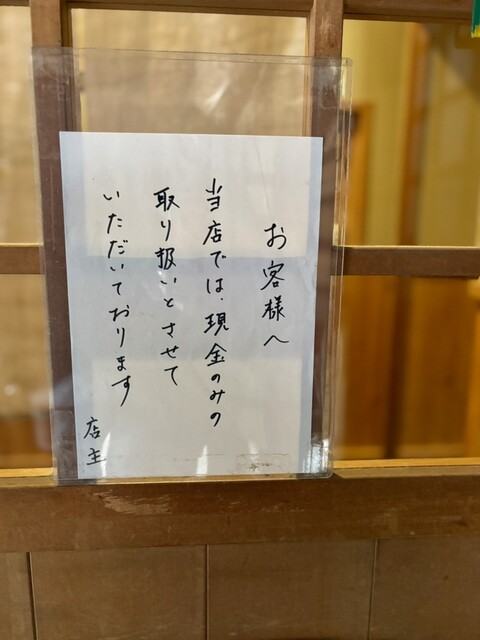 お客様へ
当店では、現金のみの
取り扱いとさせて
いただいております
店主